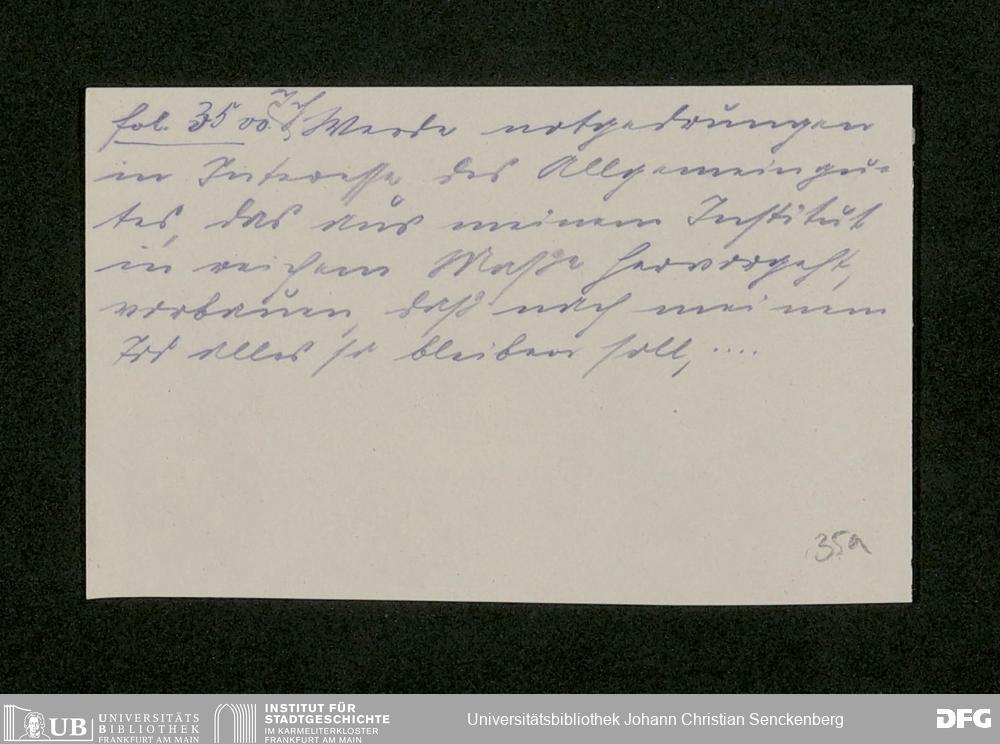 fol. 35 vo. Ich Werde notgedrungen
in Interesse des Allgemeingu-
tes, das aus meinem Institut
in reichem Maße hervorgeht,
vorbauen, daß nach meinem
Tod alles so bleiben soll, ....
35a
UB UNIVERSITÄTS
BIBLIOTHEK
FRANKFURT AM MAIN
INSTITUT FÜR
STADTGESCHICHTE
IM KARMELITERKLOSTER
FRANKFURT AM MAIN
Universitätsbibliothek Johann Christian Senckenberg
DFG